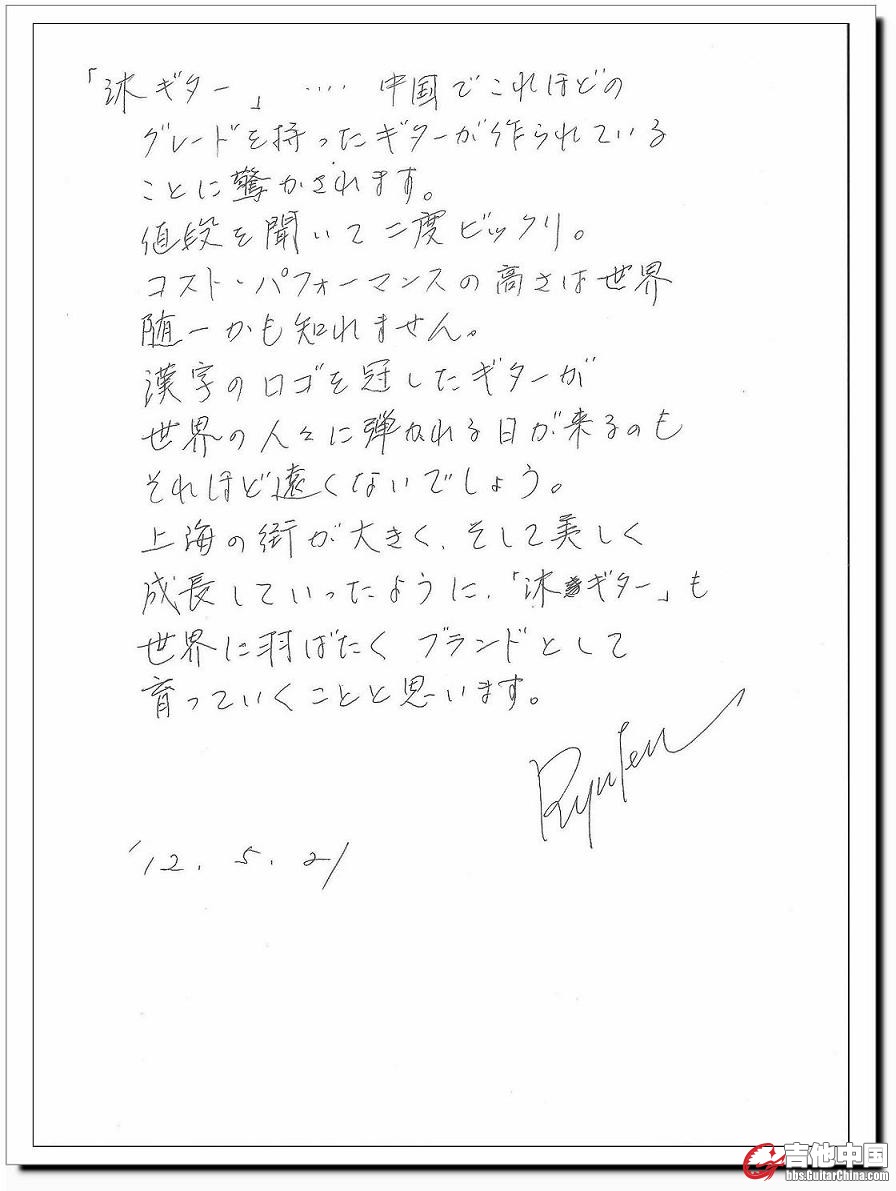 「沐ギター」‥‥中国でこれほどの
グレードを持ったギターが作られている
ことに驚かされます。
値段を聞いて二度ビックリ。
コスト・パフォーマンスの高さは世界
随一かも知れません。
漢字のロゴを冠したギターが
世界の人々に弾かれる日が来るのも
それほど遠くないでしょう。
上海の街が大きく、そして美しく
成長していったように、「沐ギター」も
世界に羽ばたくブランドとして
育っていくことと思います。
Ryuten
'12.5.21
吉他中国
bbs.GuitarChina.com